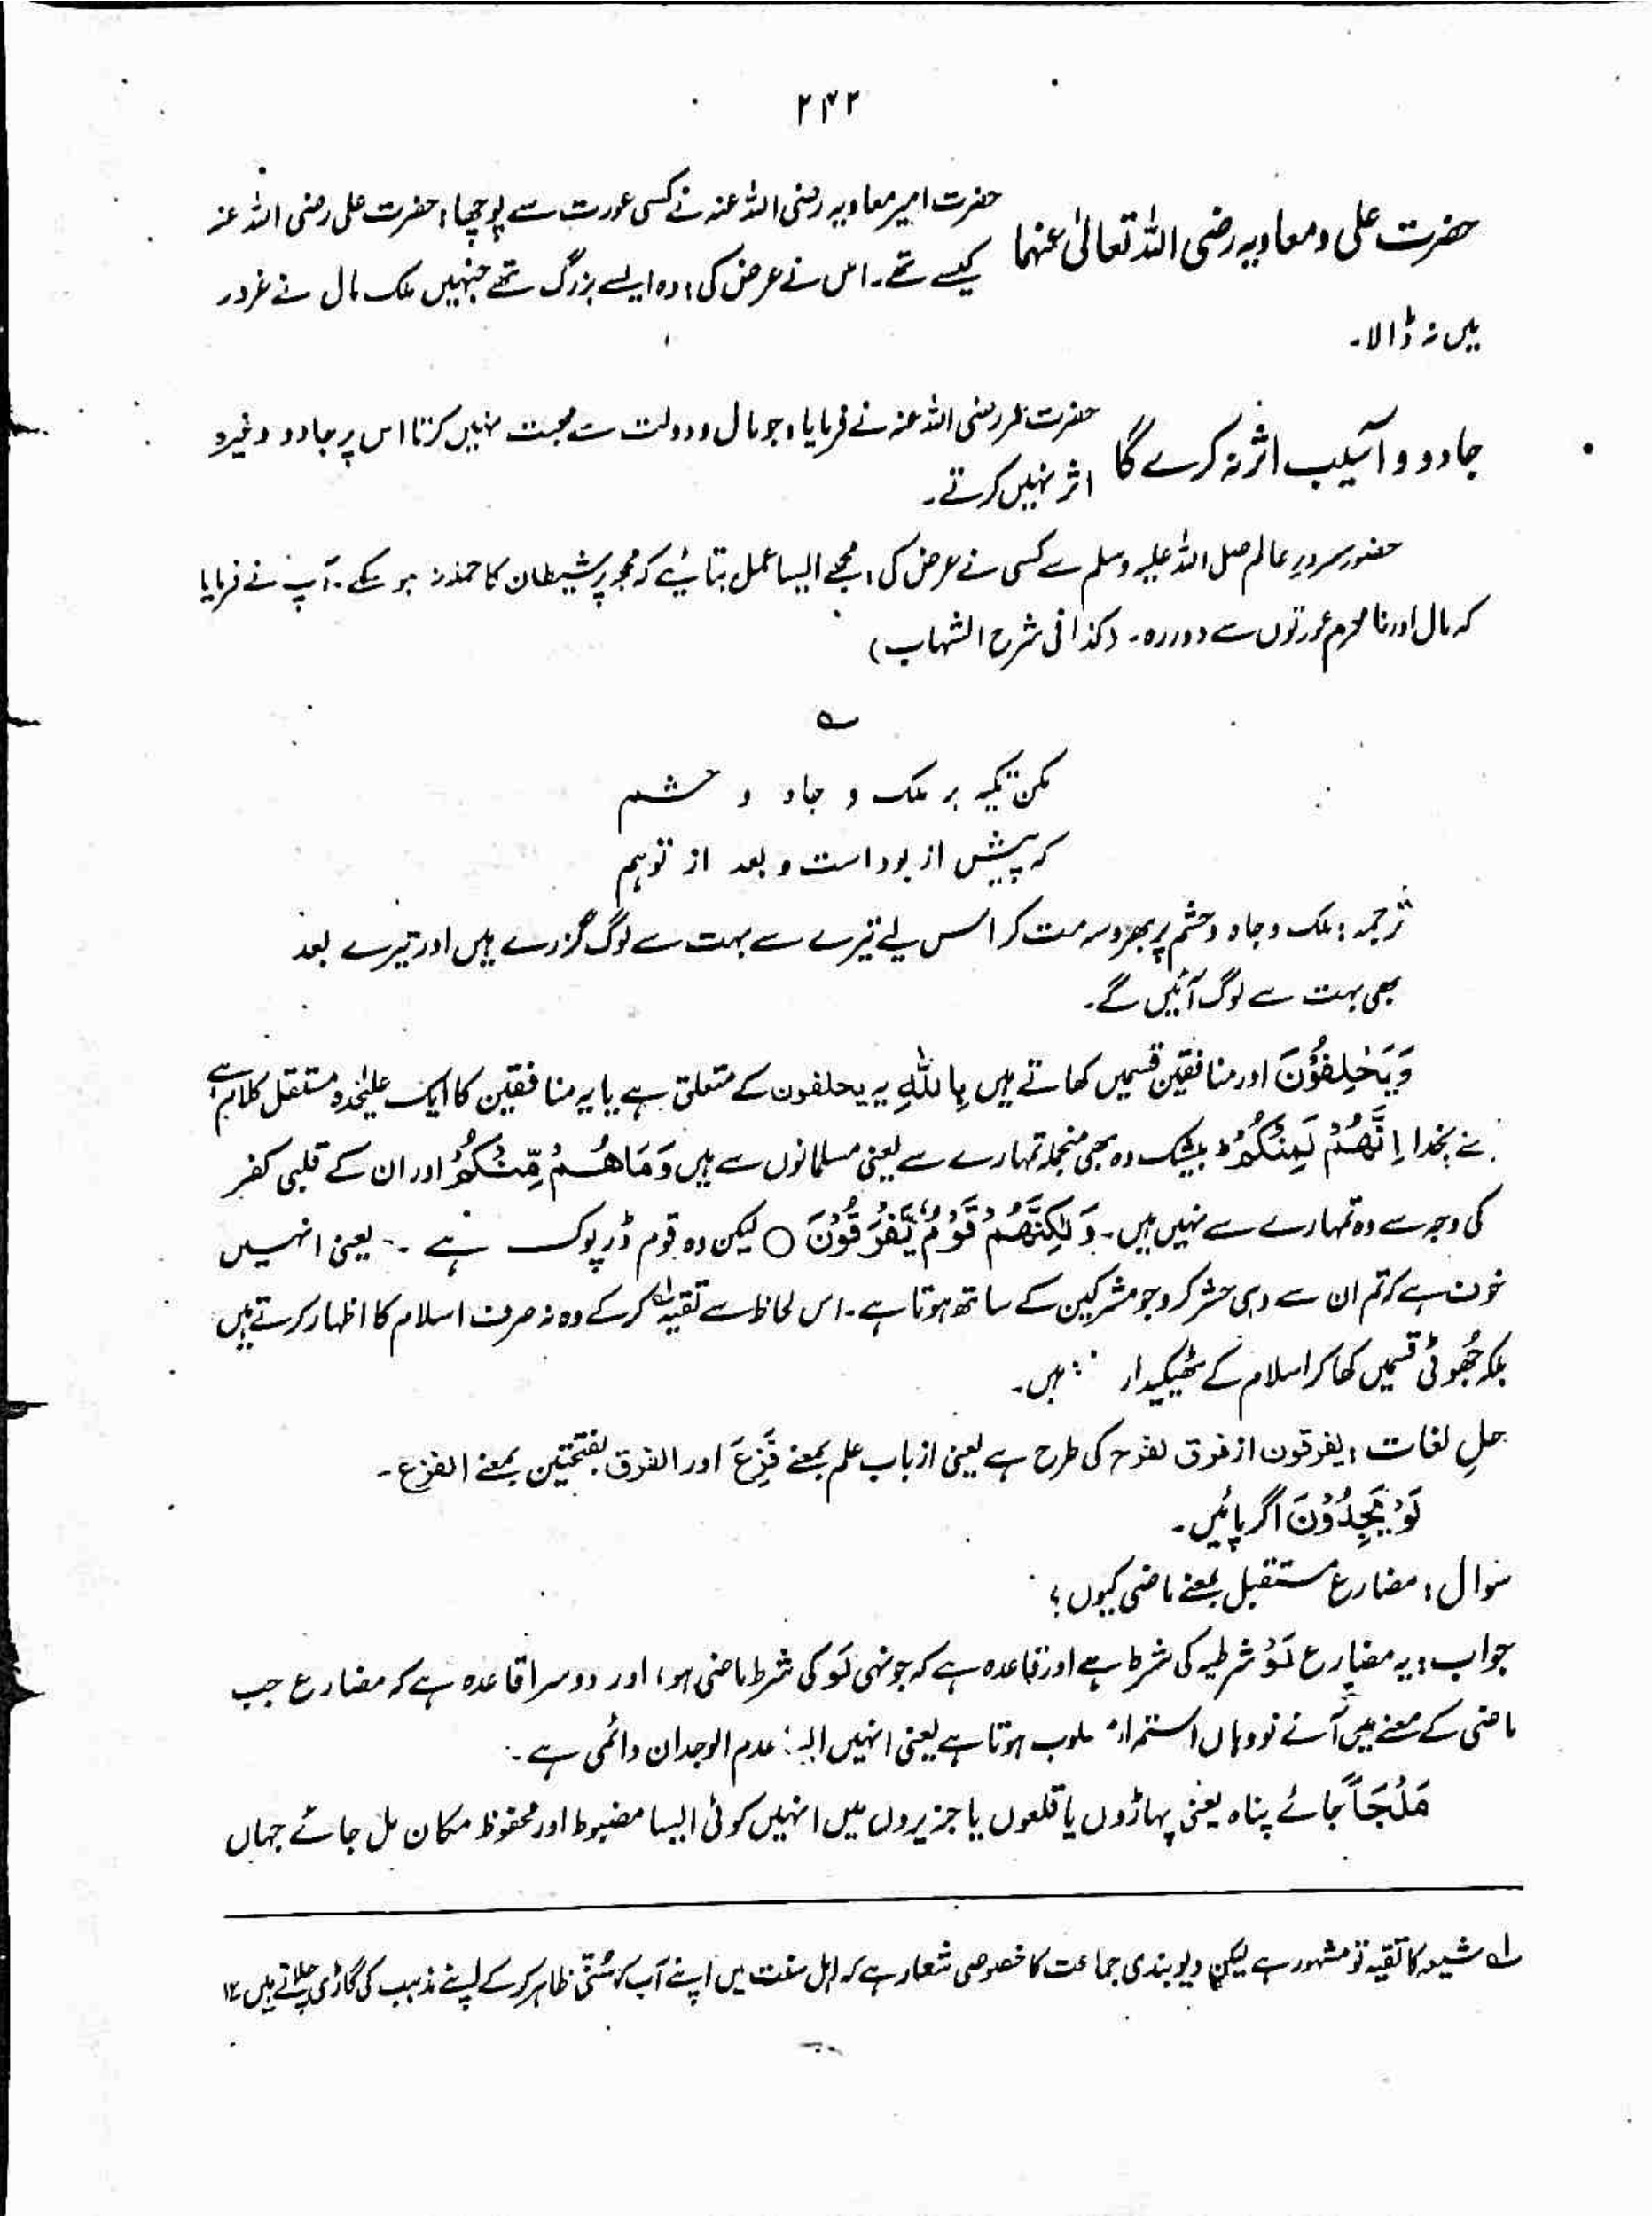 ۲۴۲
حضرت علی و معاویہ رضی اللہ تعالیٰ عنہما
حضرت امیر معاویہ رضی اللہ عنہ نے کسی عورت سے پوچھا، حضرت علی رضی اللہ عنہ
کیسے تھے۔ اس نے عرض کی، وہ ایسے بزرگ تھے جنہیں ملک مال نے غرور
میں نہ ڈالا۔
جادو و آسیب اثر نہ کرے گا
حضرت عمر رضی اللہ عنہ نے فرمایا، جو مال و دولت سے محبت نہیں کرتا اس پر جادو وغیرہ
اثر نہیں کرتے۔
حضور سرورِ عالم صلی اللہ علیہ وسلم سے کسی نے عرض کی، مجھے ایسا عمل بتائیے کہ مجھ پر شیطان کا حملہ نہ ہو سکے۔ آپ نے فرمایا
کہ مال اور نامحرم عورتوں سے دور رہ۔ (کذا فی شرح الشہاب)
؎
مکن تکیہ بر ملک و جاہ و حشم
کہ پیش از بود است و بعد از تو ہم
ترجمہ: ملک و جاہ و حشم پر بھروسہ مت کر اس لیے تیرے سے بہت سے لوگ گزرے ہیں اور تیرے بعد
بھی بہت سے لوگ آئیں گے۔
وَيَحْلِفُوْنَ اور منافقین قسمیں کھاتے ہیں بِاللّٰهِ یہ یحلفون کے متعلق ہے یا یہ منافقین کا ایک علیٰحدہ مستقل کلام ہے
بخدا اِنَّهُمْ لَمِنْكُمْ ؕ بیشک وہ بھی منجملہ تمہارے سے یعنی مسلمانوں سے ہیں وَمَا هُمْ مِّنْكُمْ اور ان کے قلبی کفر
کی وجہ سے وہ تمہارے سے نہیں ہیں۔ وَلٰكِنَّهُمْ قَوْمٌ يَّفْرَقُوْنَ ○ لیکن وہ قوم ڈرپوک ہے ۔ یعنی انہیں
خوف ہے کہ تم ان سے وہی حشر کرو جو مشرکین کے ساتھ ہوتا ہے۔ اس لحاظ سے تقیہ لہ کر کے وہ نہ صرف اسلام کا اظہار کرتے ہیں
بلکہ جُھوٹی قسمیں کھا کر اسلام کے ٹھیکیدار ہیں۔
حلِ لغات: یفرقون از فرق لفرح کی طرح ہے یعنی از باب علم بمعنے فَزِعَ اور الفرق بفتحتین بمعنے الفزع۔
لَوْ يَجِدُوْنَ اگر پائیں۔
سوال: مضارع مستقبل بمعنے ماضی کیوں؟
جواب: یہ مضارع لَوْ شرطیہ کی شرط ہے اور قاعدہ ہے کہ جونہی لَو کی شرط ماضی ہو، اور دوسرا قاعدہ ہے کہ مضارع جب
ماضی کے معنے میں آئے تو وہاں استمرار ہوتا ہے یعنی انہیں عدم الوجدان دائمی ہے۔
مَلْجَاً جائے پناہ یعنی پہاڑوں یا قلعوں یا جزیروں میں انہیں کوئی ایسا مضبوط اور محفوظ مکان مل جائے جہاں
لہ شیعہ کا تقیہ تو مشہور ہے لیکن دیوبندی جماعت کا خصوصی شعار ہے کہ اہل سنت میں اپنے آپ کو سُنّی ظاہر کر کے اپنے مذہب کی گاڑی چلاتے ہیں ۱۲